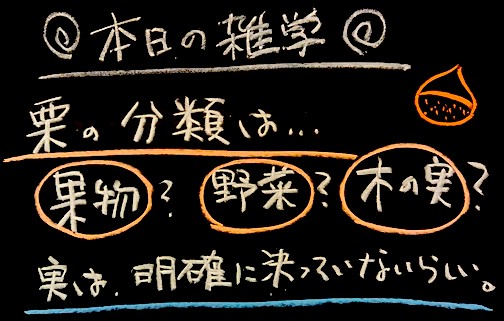 本日の雑学
栗の分類は...
果物? 野菜? 木の実?
実は、明確に決っていないらしい。